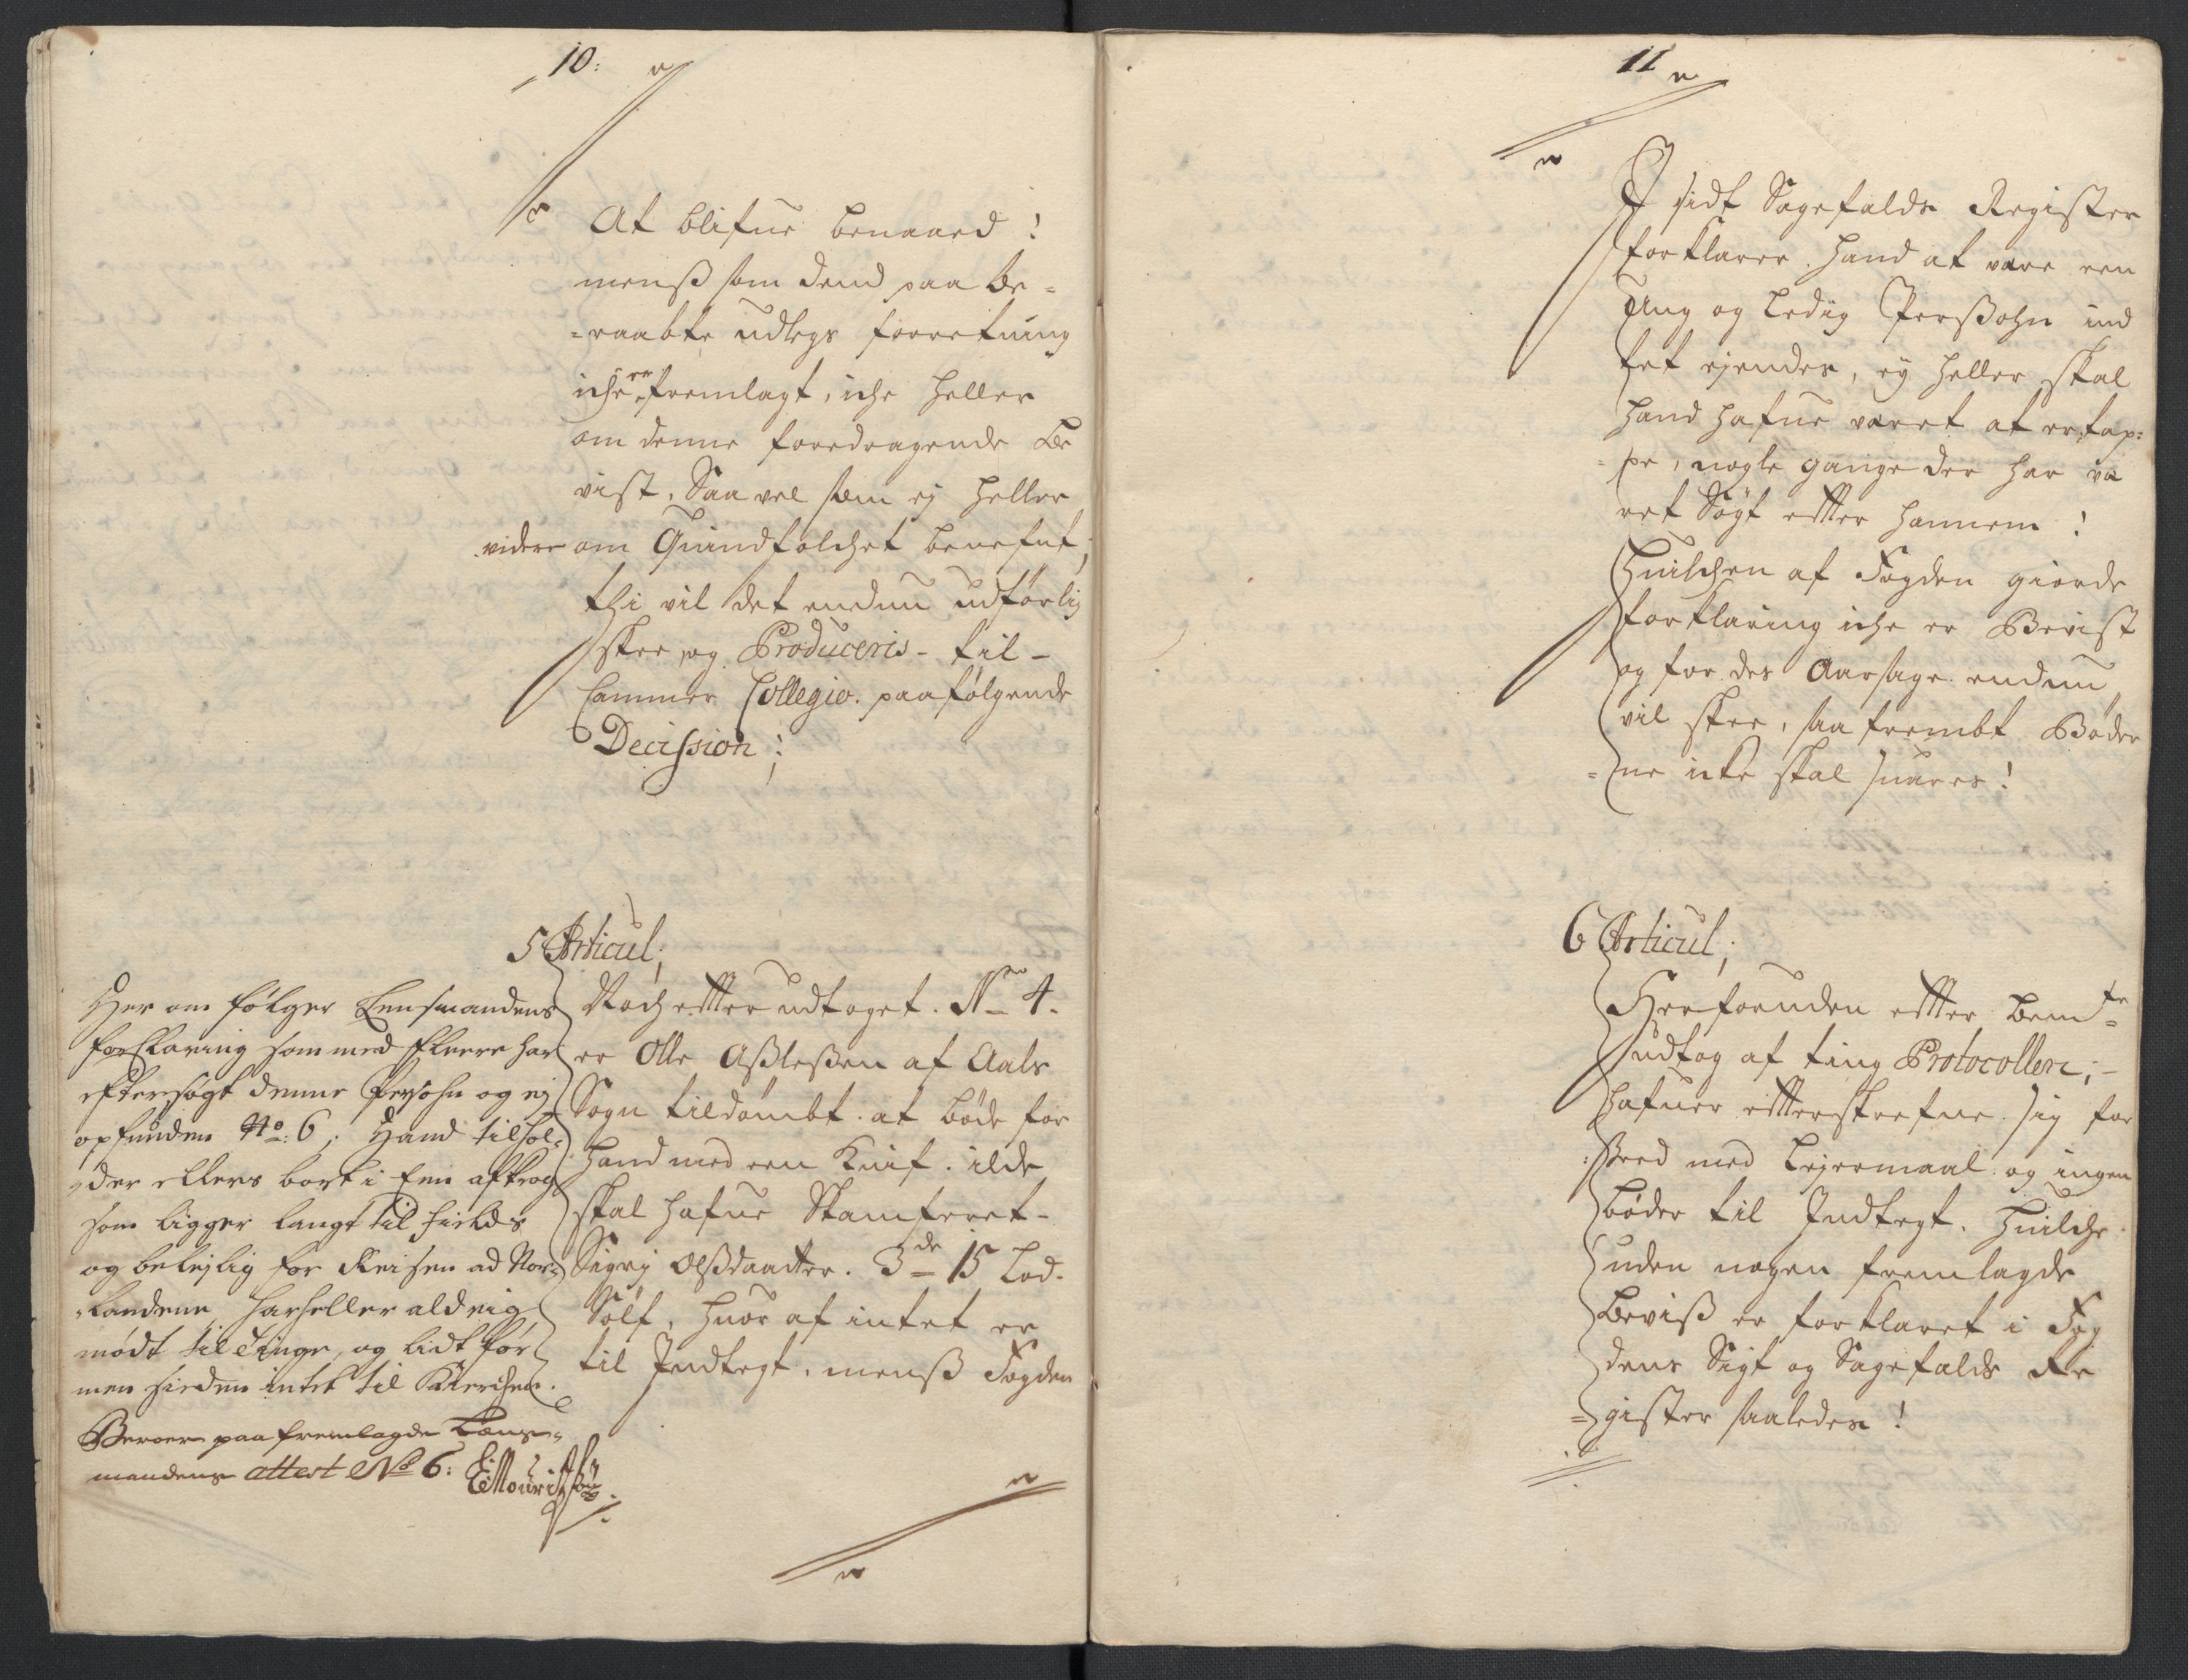 10:
At blifue benaaed!
menß som dend paa be=
=raabte udlegs forretning
iche er fremlagt, iche heller
om denne foredragende be
vist, Saa vel som ej heller
videre om Quindfolchet benefnt,
thi vil det endnu udførlig
skee, og Produceris - til -
Cammer Collegio. paafølgende
Decission;
5 Articul;
Noch effter udtoget. No 4.
er Olle Aßleßen af Aals
Sogn tildømbt. at bøde for
hand med een Knif. ilde
skal hafue Skamferet -
Sigrj Olßdaatter. 3de 15 Lod.
Sølf, huor af intet er
til Indtegt, menß Fogden
Her om følger Lensmandens
forklaring som med fleere har
eftersøgt denne Persohn og ej
opfunden No: 6; Hand tilhol=
=der ellers bort i Een afkrog
som ligger langt til fields
og belejlig for Reisen ad Nor=
=landene, har heller aldrig
mødt til Tinge, og lidt før
men siden intet til Kierchen.
Beroer paa fremlagde Lens=
mandens attest No 6:
11
I sidt Sagefalds Register
forklarer hand at være een
Ung og Ledig Perßohn ind
tet ejendes, ey heller skal
hand hafue været at ertap=
=pe, nogle gange der har væ
ret Søgt effter hannem!
Huilchen af Fogden giorde
forklaring iche er Bevist
og for des Aarsage endnu
vil skee, saa frembt Bøder
=ne icke skal suares!
6 Articul;
Herforuden effter bemte
udtog af ting Protocollen; -
hafuer effterskrefne sig for
:seed med Lejermaal og ingen
bøder til Indtegt. Huilche
uden nogen fremlagde
Beviß er forklaret i Fog
dens Sigt og Sagefalds Re
=gister saaledes!